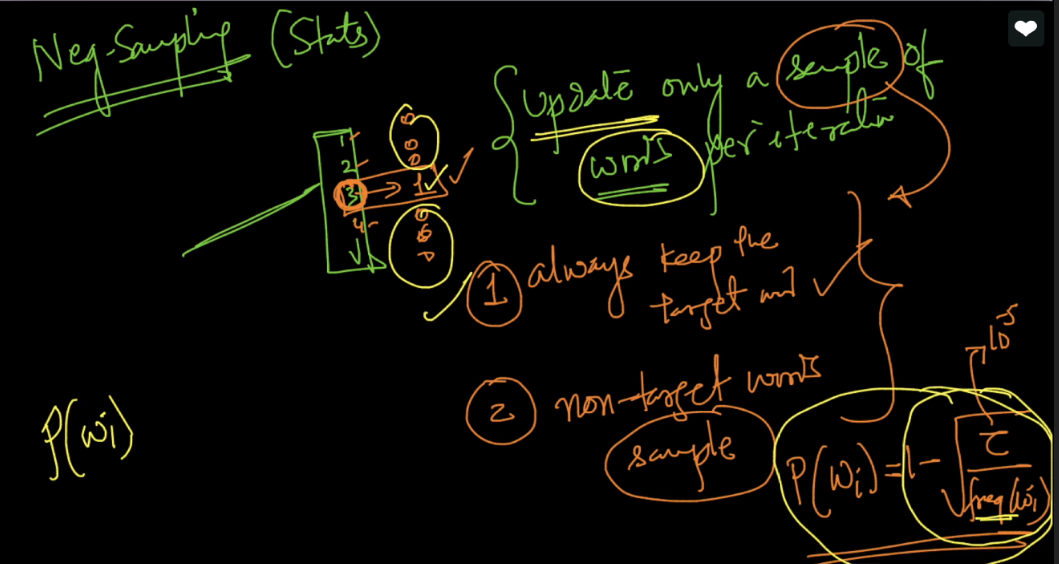 Neg-Sampling (Stats)
{ update only a sample of
words per iteration
1
2
3 → 1
4
V
0
0
0
0
0
0
1 always keep the
target word
2 non-target words
sample
10^-5
P(wi) = 1 - √(τ / freq(wi))
P(wi)